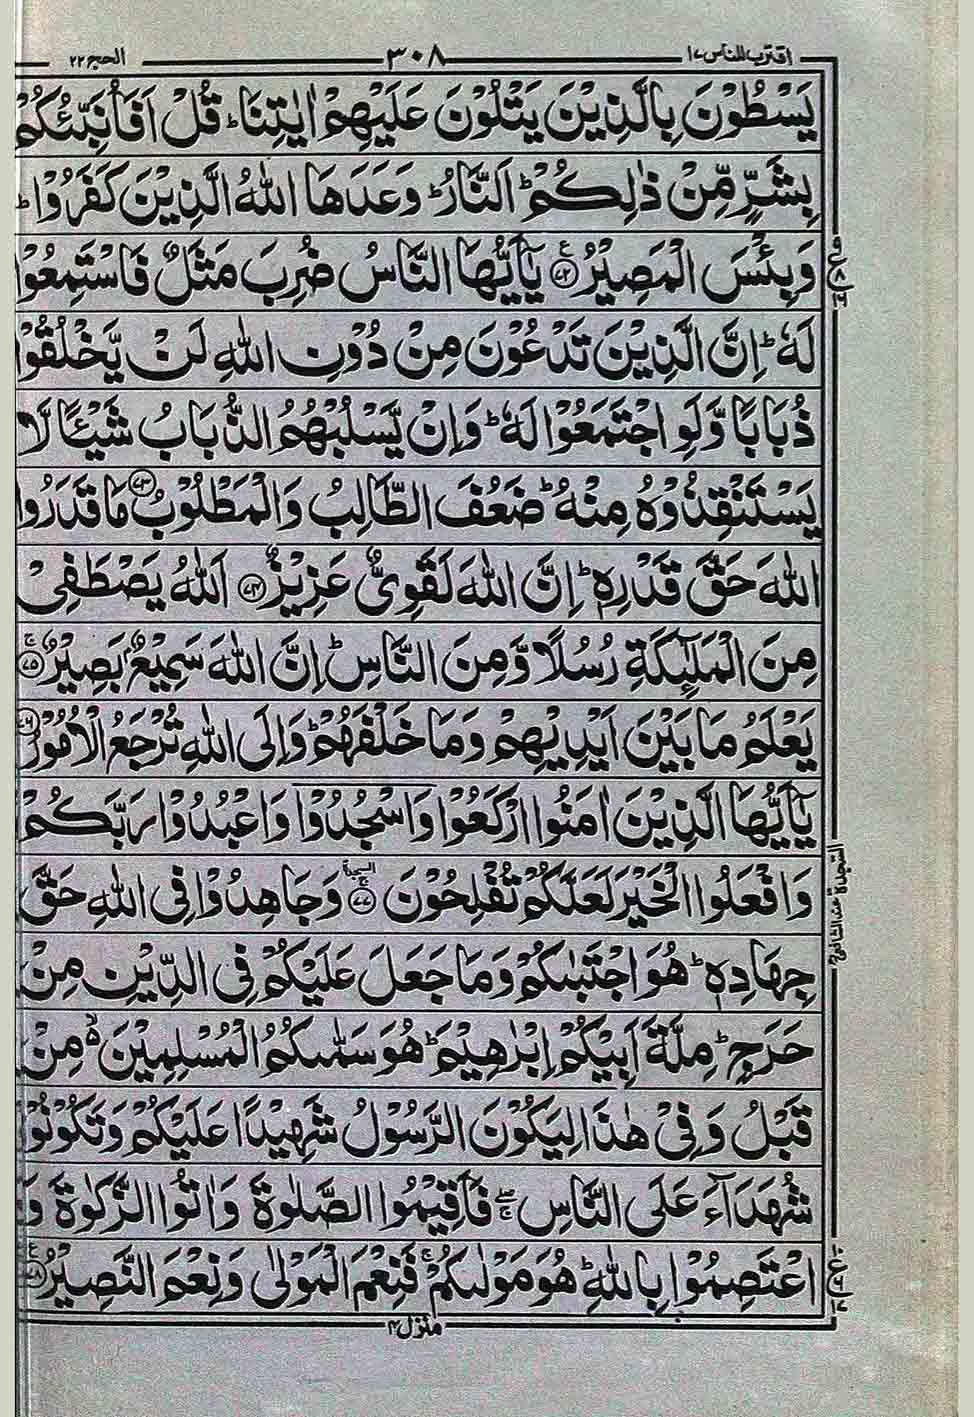 اقترب للناس ١٧ ٣٠٨ الحج ٢٢
يَسْطُوْنَ بِالَّذِيْنَ يَتْلُوْنَ عَلَيْهِمْ اٰيٰتِنَا ؕ قُلْ اَفَاُنَبِّئُكُمْ
بِشَرٍّ مِّنْ ذٰلِكُمْ ؕ اَلنَّارُ ؕ وَعَدَهَا اللّٰهُ الَّذِيْنَ كَفَرُوْا ؕ
وَبِئْسَ الْمَصِيْرُ ۧ ﴿٧٢﴾ يٰۤاَيُّهَا النَّاسُ ضُرِبَ مَثَلٌ فَاسْتَمِعُوْا
لَهٗ ؕ اِنَّ الَّذِيْنَ تَدْعُوْنَ مِنْ دُوْنِ اللّٰهِ لَنْ يَّخْلُقُوْا
ذُبَابًا وَّلَوِ اجْتَمَعُوْا لَهٗ ؕ وَاِنْ يَّسْلُبْهُمُ الذُّبَابُ شَيْـًٔا لَّا
يَسْتَنْقِذُوْهُ مِنْهُ ؕ ضَعُفَ الطَّالِبُ وَالْمَطْلُوْبُ ﴿٧٣﴾ مَا قَدَرُوا
اللّٰهَ حَقَّ قَدْرِهٖ ؕ اِنَّ اللّٰهَ لَقَوِيٌّ عَزِيْزٌ ﴿٧٤﴾ اَللّٰهُ يَصْطَفِيْ
مِنَ الْمَلٰٓئِكَةِ رُسُلًا وَّمِنَ النَّاسِ ؕ اِنَّ اللّٰهَ سَمِيْعٌۢ بَصِيْرٌ ۚ ﴿٧٥﴾
يَعْلَمُ مَا بَيْنَ اَيْدِيْهِمْ وَمَا خَلْفَهُمْ ؕ وَاِلَى اللّٰهِ تُرْجَعُ الْاُمُوْرُ ﴿٧٦﴾
يٰۤاَيُّهَا الَّذِيْنَ اٰمَنُوا ارْكَعُوْا وَاسْجُدُوْا وَاعْبُدُوْا رَبَّكُمْ
وَافْعَلُوا الْخَيْرَ لَعَلَّكُمْ تُفْلِحُوْنَ ۚ ﴿٧٧﴾ وَجَاهِدُوْا فِي اللّٰهِ حَقَّ
جِهَادِهٖ ؕ هُوَ اجْتَبٰىكُمْ وَمَا جَعَلَ عَلَيْكُمْ فِي الدِّيْنِ مِنْ
حَرَجٍ ؕ مِلَّةَ اَبِيْكُمْ اِبْرٰهِيْمَ ؕ هُوَ سَمّٰىكُمُ الْمُسْلِمِيْنَ ۙ۬ مِنْ
قَبْلُ وَفِيْ هٰذَا لِيَكُوْنَ الرَّسُوْلُ شَهِيْدًا عَلَيْكُمْ وَتَكُوْنُوْا
شُهَدَآءَ عَلَى النَّاسِ ۖۚ فَاَقِيْمُوا الصَّلٰوةَ وَاٰتُوا الزَّكٰوةَ وَ
اعْتَصِمُوْا بِاللّٰهِ ؕ هُوَ مَوْلٰىكُمْ ۚ فَنِعْمَ الْمَوْلٰى وَنِعْمَ النَّصِيْرُ ۧ ﴿٧٨﴾
السجدة
السجدة عند الشافعي
منزل ٤